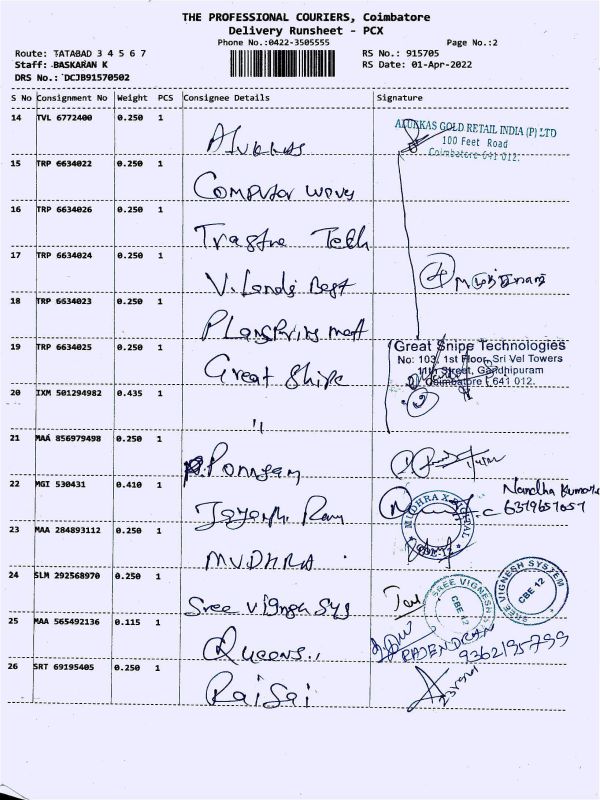 THE PROFESSIONAL COURIERS, Coimbatore
Delivery Runsheet - PCX
Phone No.:0422-3505555
Page No.:2
Route: TATABAD 3 4 5 6 7
RS No.: 915705
Staff: BASKARAN K
RS Date: 01-Apr-2022
DRS No.: DCJB91570502
S No Consignment No Weight PCS Consignee Details Signature
14 TVL 6772400 0.250 1
Alukkas
ALUKKAS GOLD RETAIL INDIA (P) LTD
100 Feet Road
Coimbatore-641 012.
15 TRP 6634022 0.250 1
Computer waves
16 TRP 6634026 0.250 1
Tech
17 TRP 6634024 0.250 1
V.
18 TRP 6634023 0.250 1
19 TRP 6634025 0.250 1
Great
Great Snipe Technologies
No: 103, 1st Floor, Sri Vel Towers
11th Street, Gandhipuram
Coimbatore - 641 012.
20 IXM 501294982 0.435 1
"
21 MAA 856979498 0.250 1
22 MGI 530431 0.410 1
Nandha Kumar
23 MAA 284893112 0.250 1
MUDHRA
24 SLM 292568970 0.250 1
Sree Vignesh Sys
SREE VIGNESH
CBE 12
SREE VIGNESH SYSTEM
CBE 12
25 MAA 565492136 0.115 1
Queens
RAJENDRAN
9362195799
26 SRT 69195405 0.250 1
Rai Sai